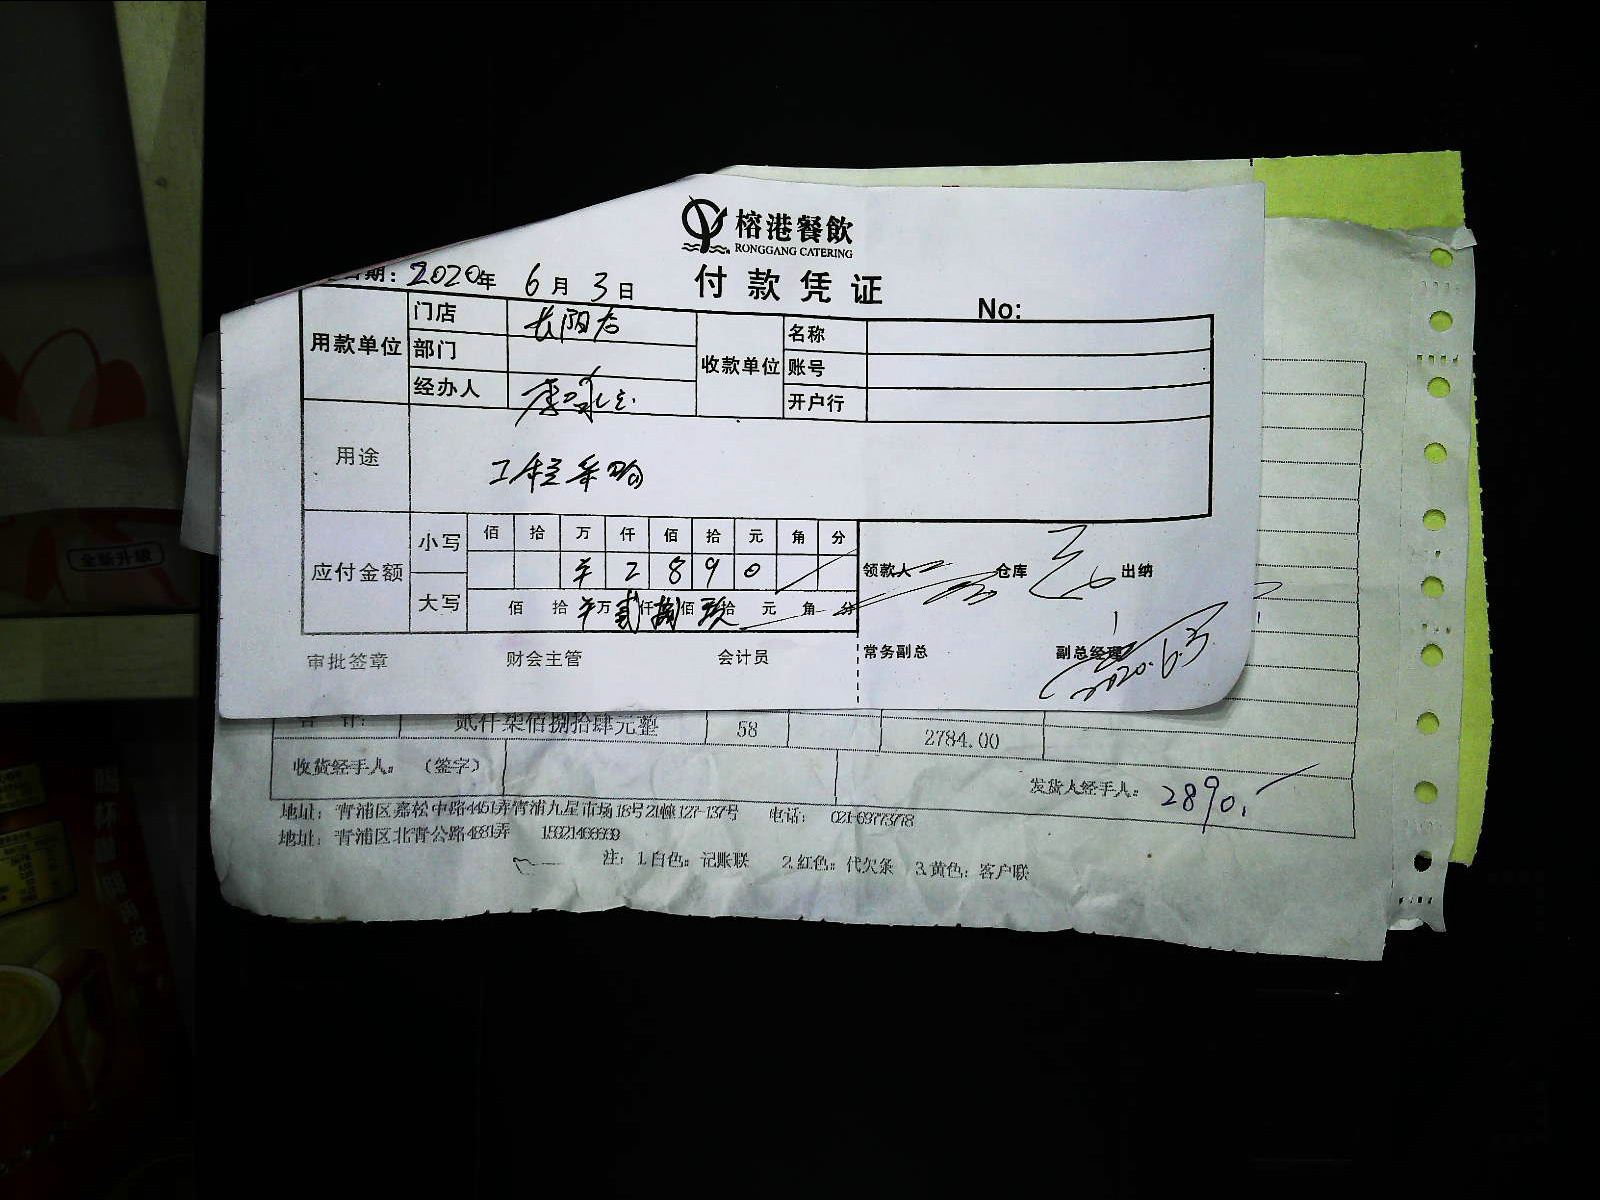 榕港餐飲
RONGGANG CATERING
付款凭证
期：2020年 6月 3日
No:
用款单位 门店 长阳店 收款单位 名称
部门 账号
经办人 开户行
用途 工程采购
应付金额 小写 佰 拾 万 仟 佰 拾 元 角 分
¥ 2 8 9 0
大写 佰 拾 万 贰仟 捌佰 玖拾 元 角 分
领款人 仓库 出纳
审批签章 财会主管 会计员 常务副总 副总经理
2020.6.3
合 计： 贰仟柒佰捌拾肆元整 58 2784.00
收货经手人： （签字） 发货人经手人： 2890.
地址： 青浦区嘉松中路4451弄青浦九星市场18号21幢127-137号 电话： 021-69773778
地址： 青浦区北青公路4681弄
注： 1.白色：记账联 2.红色：代欠条 3.黄色：客户联
全新升级